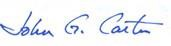 John G. Carter